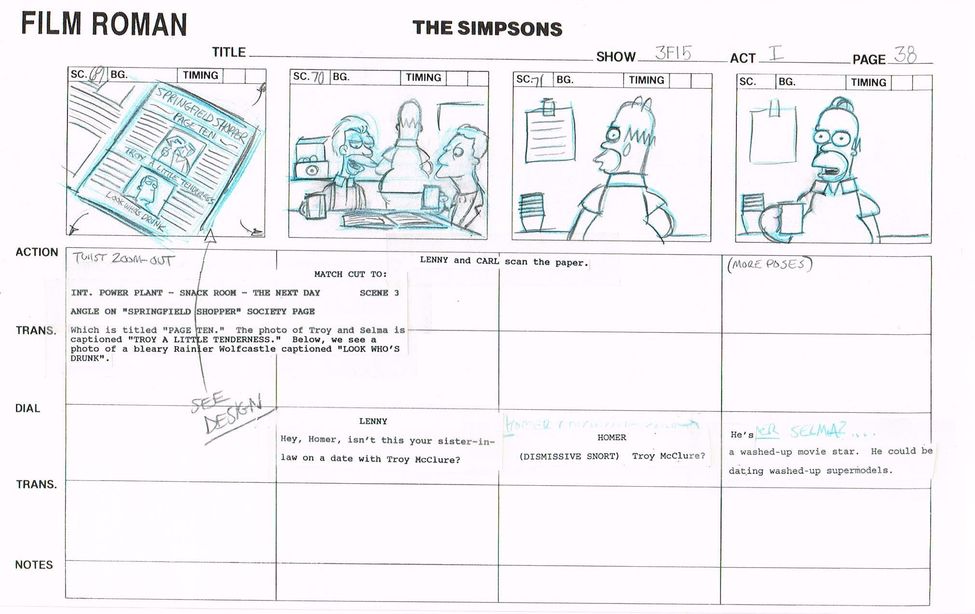 FILM ROMAN
THE SIMPSONS
TITLE
SHOW 3F15
ACT I
PAGE 38
SC. 69 BG. TIMING
SC. 70 BG. TIMING
SC. 71 BG. TIMING
SC. BG. TIMING
SPRINGFIELD SHOPPER
PAGE TEN
TROY A LITTLE TENDERNESS
LOOK WHO'S DRUNK
ACTION
TWIST ZOOM-OUT
MATCH CUT TO:
INT. POWER PLANT - SNACK ROOM - THE NEXT DAY SCENE 3
ANGLE ON "SPRINGFIELD SHOPPER" SOCIETY PAGE
Which is titled "PAGE TEN." The photo of Troy and Selma is
captioned "TROY A LITTLE TENDERNESS." Below, we see a
photo of a bleary Rainier Wolfcastle captioned "LOOK WHO'S
DRUNK".
LENNY and CARL scan the paper.
(MORE POSES)
TRANS.
SEE
DESIGN
DIAL
LENNY
Hey, Homer, isn't this your sister-in-
law on a date with Troy McClure?
HOMER
HOMER
(DISMISSIVE SNORT) Troy McClure?
He's OR SELMA? ....
a washed-up movie star. He could be
dating washed-up supermodels.
TRANS.
NOTES